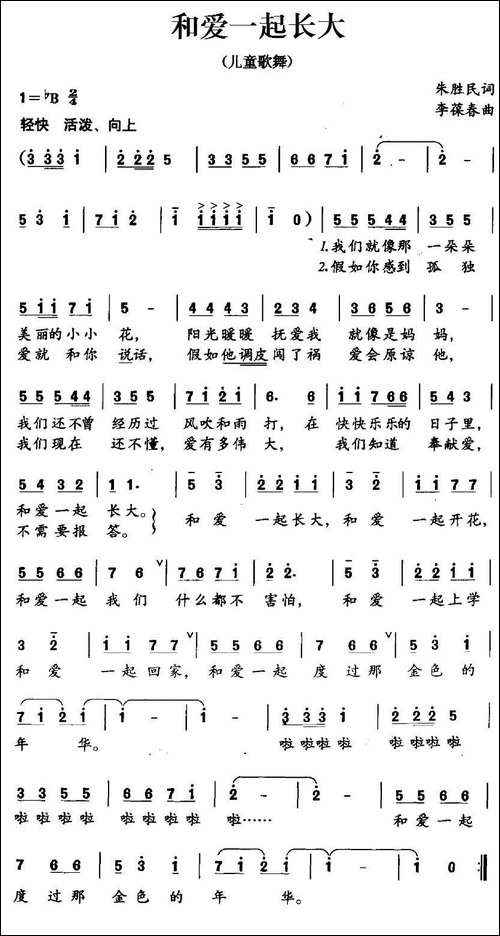 和爱一起长大
（儿童歌舞）
1=♭B 2/4
朱胜民词
轻快 活泼、向上
李葆春曲
(3 3 3 3 1 | 2 2 2 2 5 | 3 3 5 5 | 6 6 7 1 | 2 - | 2 - |
5 3 1 | 7 1 2 | 1 1 1 1 1 | 1 1 0) | 5 5 5 4 4 | 3 5 5 |
1.我们就像那 一朵朵
2.假如你感到 孤 独
5 1 1 7 1 | 5 - | 4 4 4 3 | 2 3 4 | 3 6 5 6 | 3 - |
美丽的小小 花， 阳光暖暖 抚爱我 就像是妈 妈，
爱就 和你 说话， 假如他调皮 闯了祸 爱会原谅 他，
5 5 5 4 4 | 3 5 5 | 7 1 2 1 | 6. 6 | 1 1 7 6 6 | 5 4 3 |
我们还不曾 经历过 风吹和雨 打，在 快快乐乐的 日子里，
我们现在 还不懂，爱有多伟 大， 我们知道 奉献爱，
5 4 3 2 | 1 1. | 5 3 | 2 2 1 1 | 3 2 | 1 1 7 7 |
和爱一起 长大。 和 爱 一起长大，和 爱 一起开花，
不需要报 答。
5 5 6 6 | 7 6 ∨ | 7 6 7 1 | 2 2. | 5 3 | 2 2 1 1 |
和爱一起 我 们 什么都不 害怕， 和 爱 一起上学
3 2 | 1 1 7 7 ∨ | 5 5 6 6 | 7 6 6 | 5 3 2 |
和 爱 一起回家，和爱一起 度过那 金色的
7 1 2 1 | 1 - | 1 - | 3 3 3 3 1 | 2 2 2 2 5 |
年 华。 啦 啦啦啦 啦 啦啦啦
3 3 5 5 | 6 6 7 1 | 2 - | 2 - | 5 5 6 6 |
啦 啦啦啦 啦啦啦啦 啦…… 和爱一起
7 6 6 | 5 3 2 | 7 1 2 1 | 1 - | 1 0 :‖
度过那 金色的 年 华。